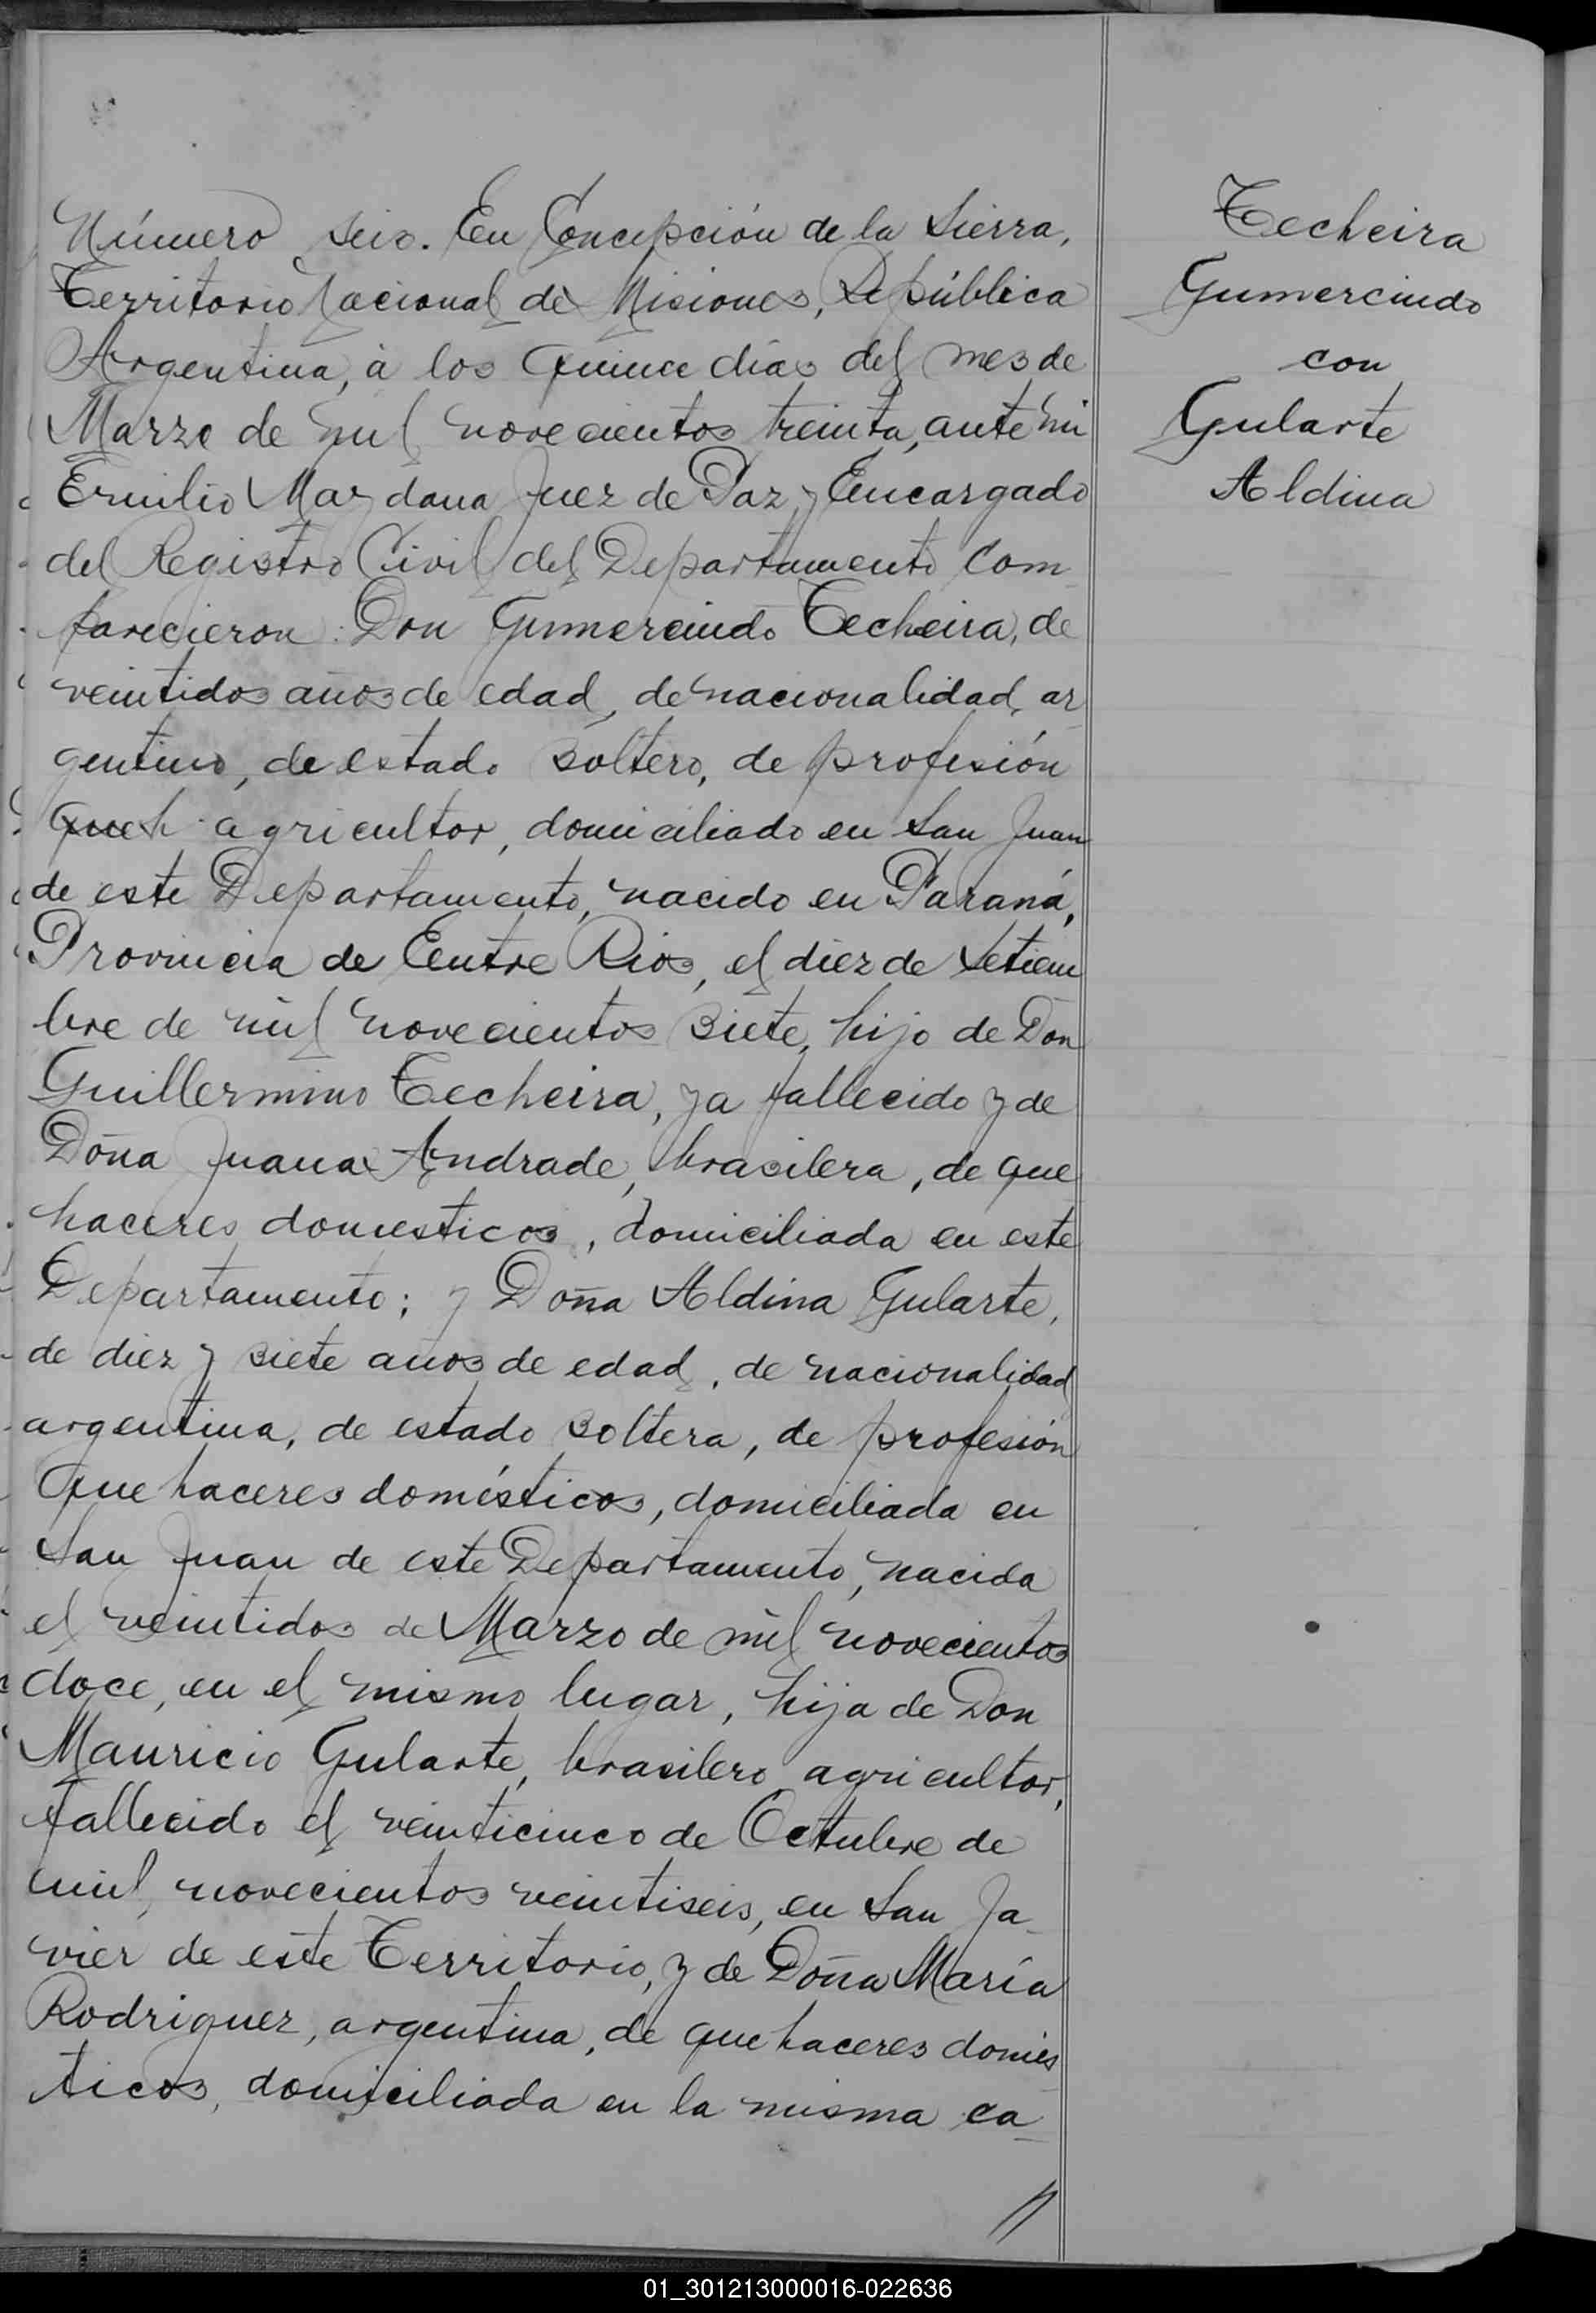 Número seis. En Concepción de la Sierra,
Territorio Nacional de Misiones, República
Argentina, à los quince dias del mes de
Marzo de mil novecientos treinta, ante mi
Emilio Maydana Juez de Paz y Encargado
del Registro Civil del Departamento com
parecieron: Don Gumercindo Techeira, de
veintidos años de edad, de nacionalidad ar
gentino, de estado soltero, de profesión
queh agricultor, domiciliado en San Juan
de este Departamento, nacido en Paraná,
Provincia de Eentre Rios, el diez de Setiem
bre de mil novecientos siete, hijo de Don
Guillermino Techeira, ya fallecido y de
Doña Juana Andrade, brasilera, de que
haceres domesticos, domiciliada en este
Departamento; y Doña Aldina Gularte,
de diez y siete años de edad, de nacionalidad
argentina, de estado soltera, de profesión
que haceres domésticos, domiciliada en
San Juan de este Departamento, nacida
el veintidos de Marzo de mil novecientos
doce, en el mismo lugar, hija de Don
Mauricio Gularte, brasilero agricultor,
fallecido el veinticinco de Octubre de
mil novecientos veintiseis, en San Ja-
vier de este Territorio, y de Doña María
Rodriguez, argentina, de que haceres domés
ticos, domiciliada en la misma ca-
Techeira
Gumercindo
con
Gularte
Aldina
01_301213000016-022636